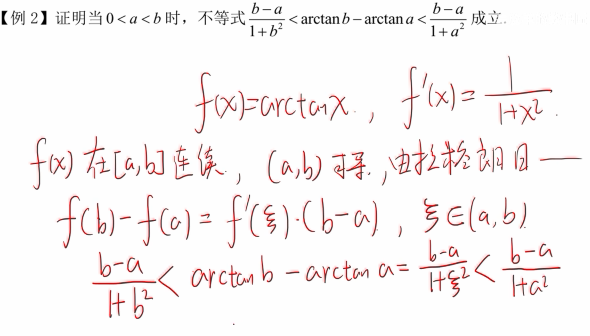 【例 2】证明当 0 < a < b 时，不等式 \frac{b-a}{1+b^2} < arctan b − arctan a < \frac{b-a}{1+a^2} 成立.
f(x)=arctanx , f'(x)= \frac{1}{1+x^2}.
f(x) 在[a,b]连续, (a,b) 可导, 由拉格朗日 —
f(b)−f(a) = f'(ξ)·(b−a) , ξ∈(a,b)
\frac{b-a}{1+b^2} < arctan b − arctan a = \frac{b-a}{1+ξ^2} < \frac{b-a}{1+a^2}